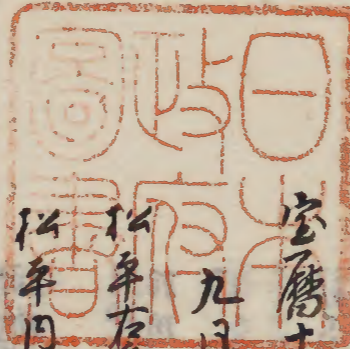 日本
政府
圖書
宝暦十
九月
松平右
松平